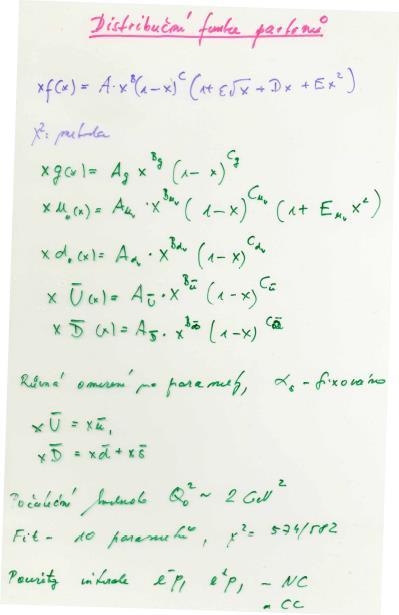 Distribuční funkce partonů
xf(x) = A·x^B(1-x)^C (1+ε√x + Dx + Ex²)
χ²: metoda
xg(x) = A_g x^{B_g} (1-x)^{C_g}
x u_v(x) = A_{u_v} · x^{B_{u_v}} (1-x)^{C_{u_v}} (1 + E_{u_v} x²)
x d_v(x) = A_{d_v} · x^{B_{d_v}} (1-x)^{C_{d_v}}
x Ū(x) = A_Ū · x^{B_ū} (1-x)^{C_ū}
x D̄(x) = A_D̄ · x^{B_D̄} (1-x)^{C_D̄}
Různá omezení na parametry, α_s - fixováno
xŪ = xū,
xD̄ = xd̄ + xs̄
Počáteční hodnota Q₀² ~ 2 GeV²
Fit - 10 parametrů, χ² = 574/582
Použity interakce e⁻p, e⁺p, - NC
- CC